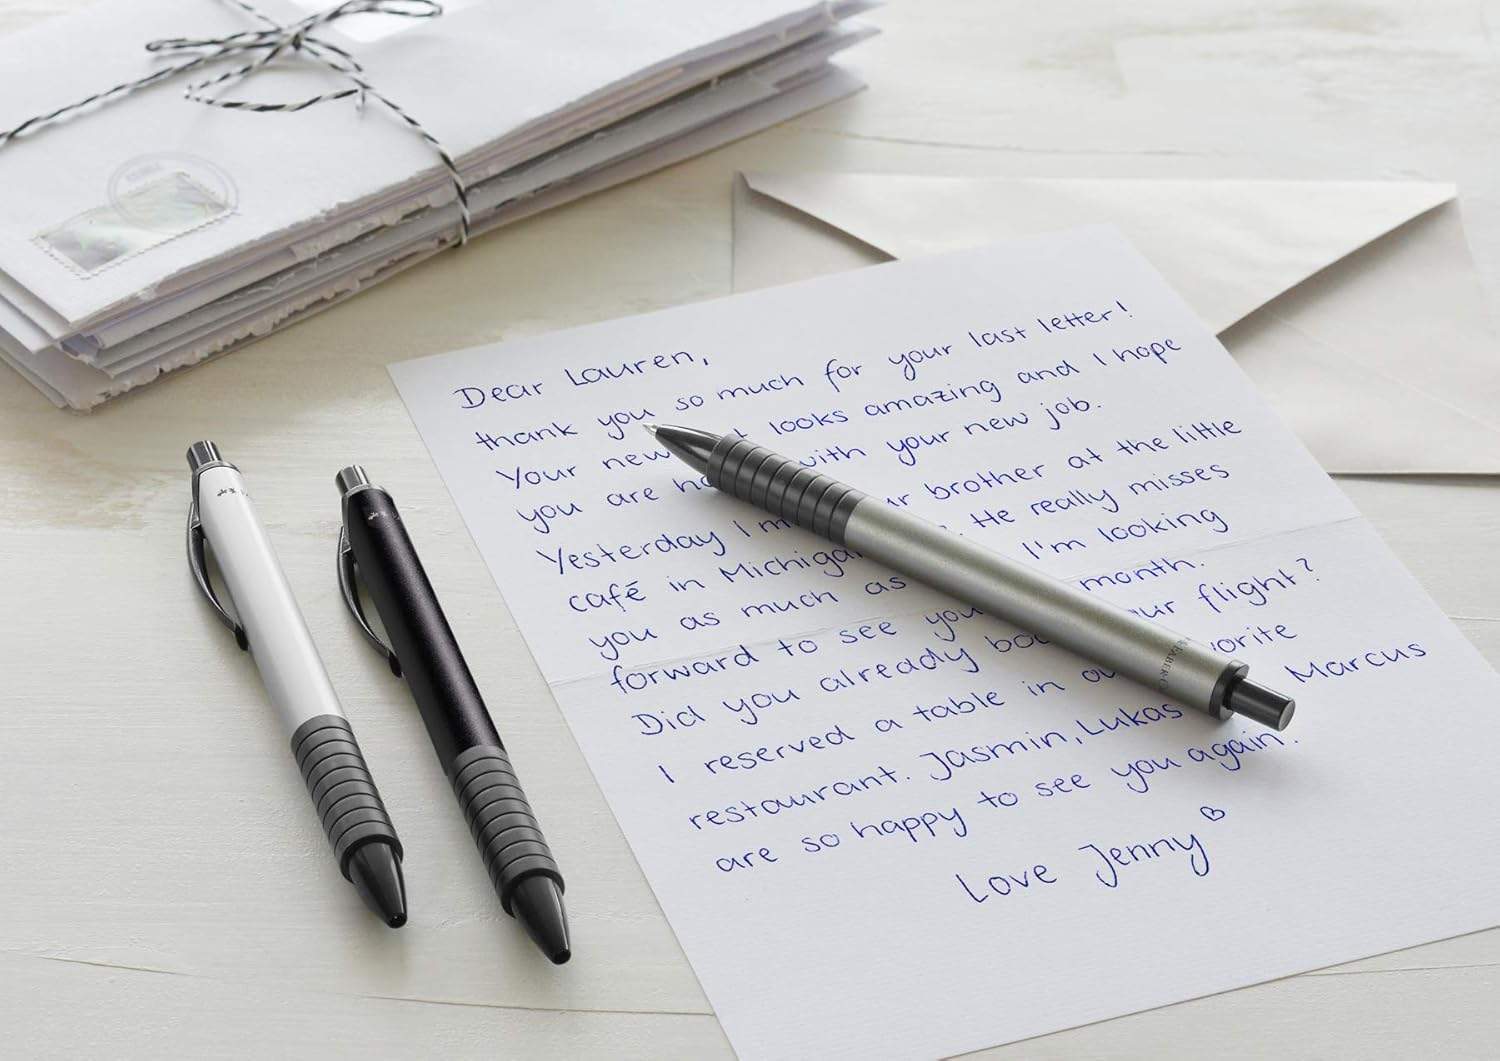 Dear Lauren,
thank you so much for your last letter!
Your new looks amazing and I hope
you are with your new job.
Yesterday I brother at the little
café in Michigan He really misses
you as much as I'm looking
forward to see you month.
Did you already flight?
I reserved a table in
restaurant. Jasmin, Lukas Marcus
are so happy to see you again.
Love Jenny